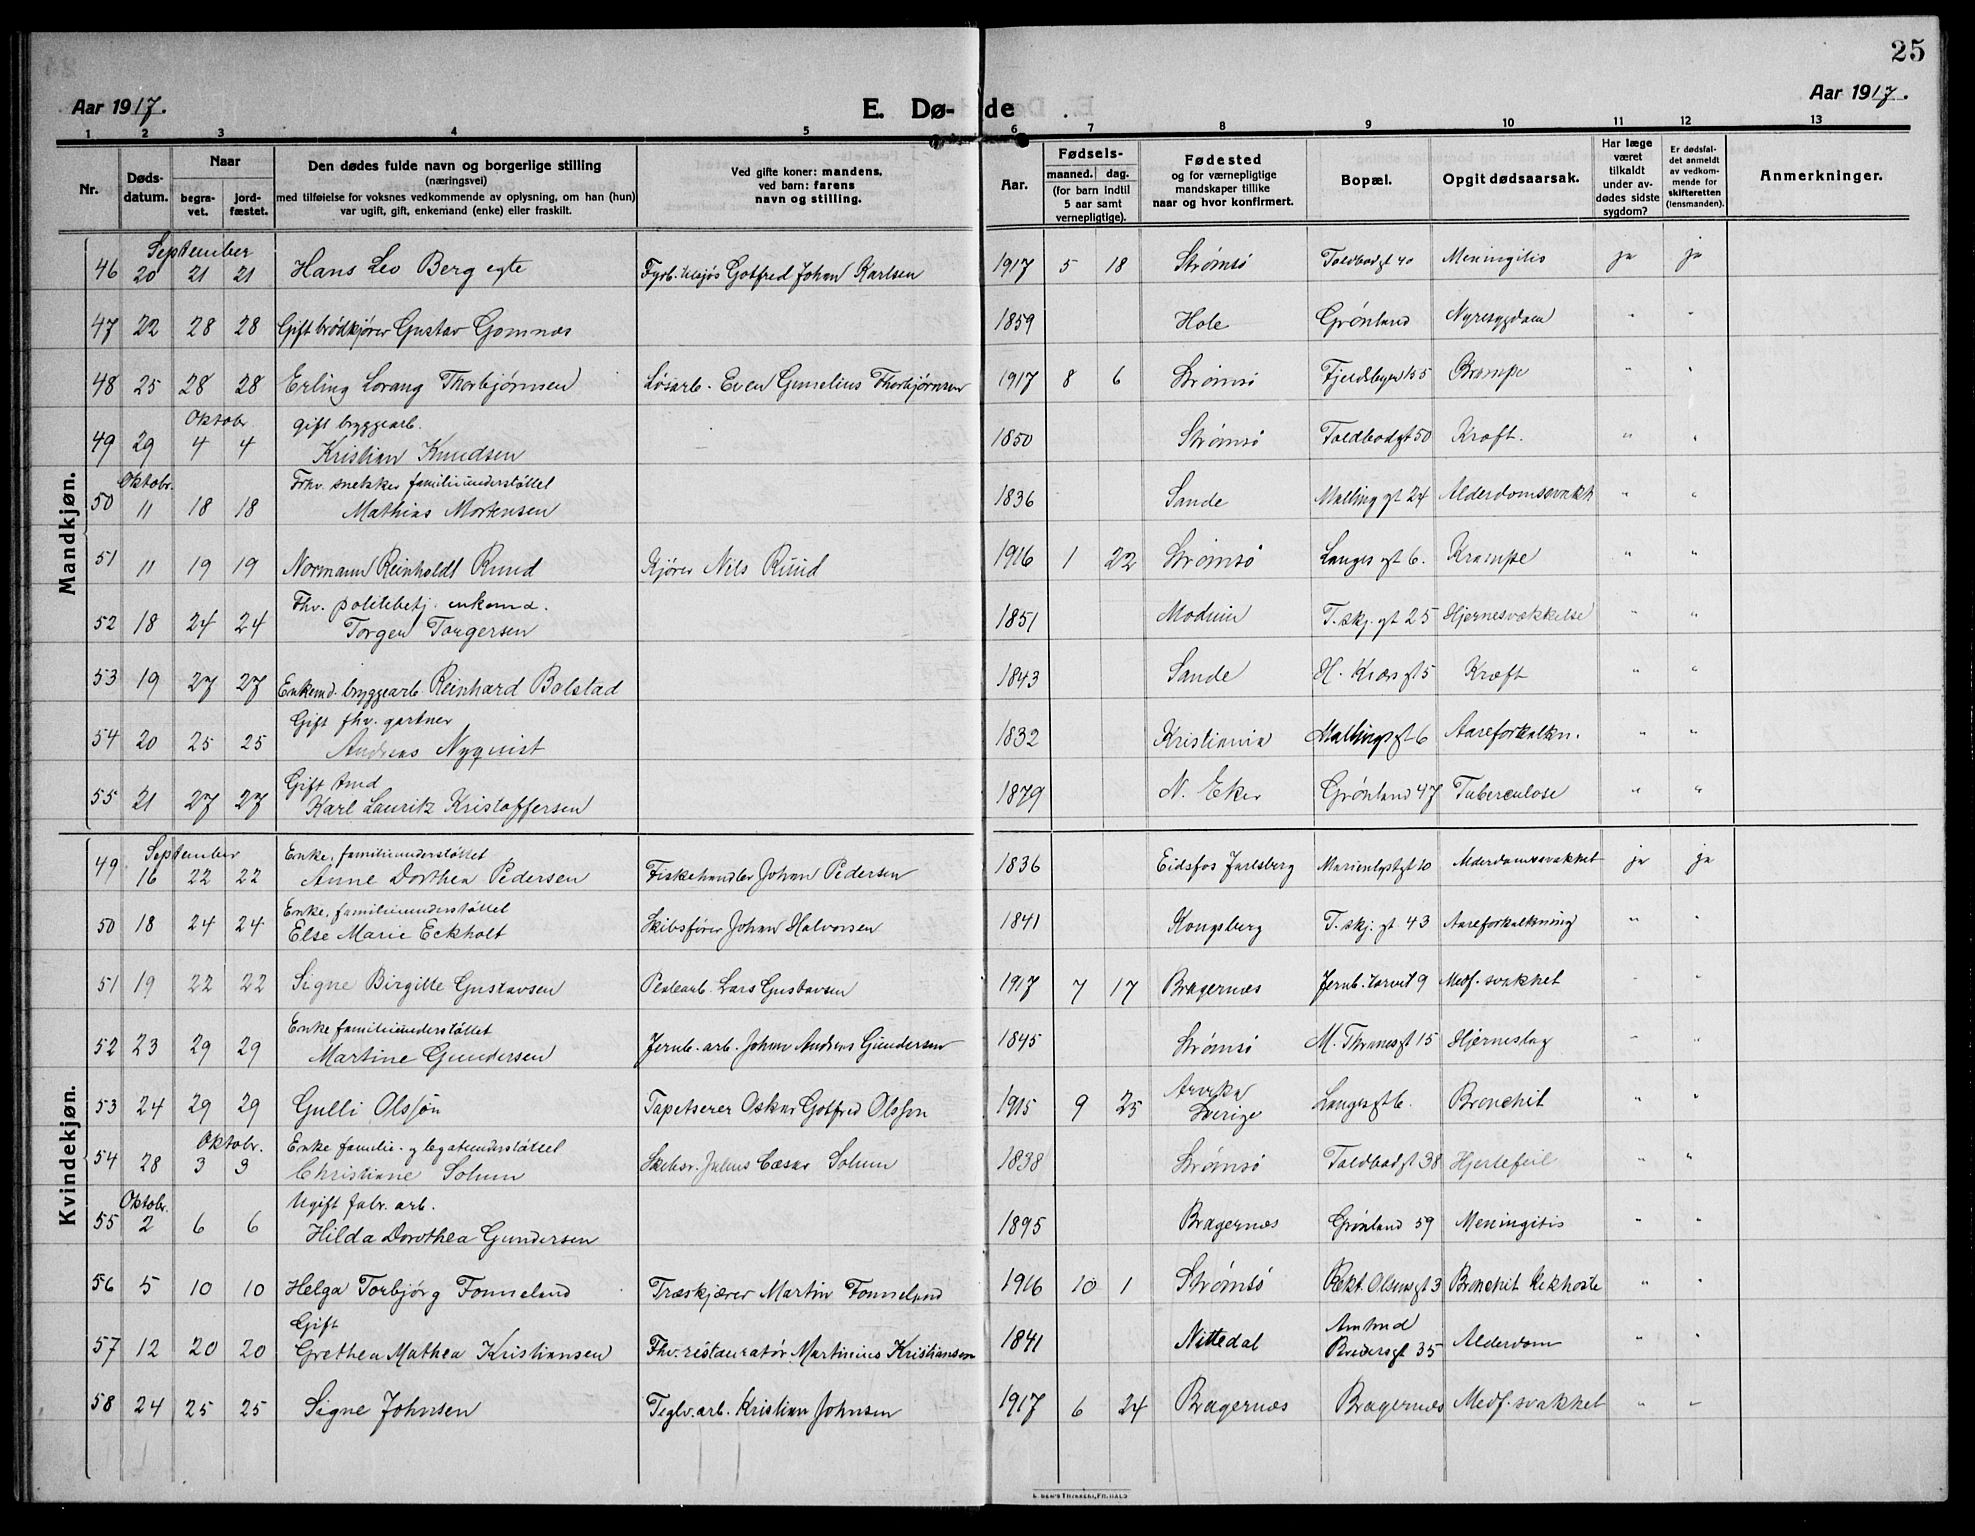 25
Aar 1917. E. Dø- de Aar 1917.
1 2 3 4 5 6 7 8 9 10 11 12 13
Nr.
Døds-
datum.
Naar
begra-
vet.
jord-
fæstet.
Den dødes fulde navn og borgerlige stilling
(næringsvei)
med tilføielse for voksnes vedkommende av oplysning, om han (hun)
var ugift, gift, enkemand (enke) eller fraskilt.
Ved gifte koner: mandens,
ved barn: farens
navn og stilling.
Aar.
Fødsels-
maaned. dag.
(for barn indtil
5 aar samt
vernepligtige).
Fødested
og for værnepligtige
mandskaper tillike
naar og hvor konfirmert.
Bopæl.
Opgit dødsaarsak.
Har læge
været
tilkaldt
under av-
dødes sidste
sygdom?
Er dødsfal-
det anmeldt
av vedkom-
mende for
skifteretten
(lensmanden).
Anmerkninger.
Mandkjøn.
September
46 20 21 21 Hans Leo Berg egte Gotfred Johan Karlsen 1917 5 18 Strømsö Toldbodgt 40 Meningitis ja ja
47 22 28 28 Gift brödkjörer Gustav Gomnæs 1859 Hole Grönland Nyresygdom " "
48 25 28 28 Erling Lorang Thorbjörnsen Lösarb. Even Gunelius Thorbjörnsen 1917 8 6 Strömsö Fjeldsbyen 155 " "
Oktobr. gift bryggearb.
49 29 4 4 Kristian Knudsen 1850 Strömsö Toldbodgt 50 Kræft. " "
Oktobr. Frhv. snekker familieunderstöttet
50 11 18 18 Mathias Mortensen 1836 Sande Malling gt 24 Alderdomssvakh " "
51 11 19 19 Normann Reinholdt Ruud Kjörer Nils Ruud 1916 1 22 Strömsö Langes gt 6. Krampe " "
Fhv. politibetj. enkemd.
52 18 24 24 Torger Torgersen 1851 Modum T. skj. gt 25 Hjernesvækkelse " "
53 19 27 27 Enkemd. bryggearb Reinhard Bolstad 1843 Sande H. Kiærs gt 5 Kræft " "
Gift fhv. gartner
54 20 25 25 Andreas Nyquist 1832 Kristiania Mallings gt 6 Aareforkalkn. " "
Gift
55 21 27 27 Karl Lauritz Kristoffersen 1879 N. Eker Grönland 47 Tuberculose " "
Kvindekjøn.
September Enke, familieunderstöttet
49 16 22 22 Anne Dorthea Pedersen Fiskehandler Johan Pedersen 1836 Eidsfos Jarlsberg Marienlystgt 10 Alderdomssvakhet ja ja
Enke, familieunderstöttet
50 18 24 24 Else Marie Eckholt Skibsförer Johan Halvorsen 1841 Kongsberg T. skj. gt 43 Aareforkalkning " "
51 19 22 22 Signe Birgitte Gustavsen Lars Gustavsen 1917 7 17 Bragernæs Jernb. torvet 9 Medf. svakhet " "
Enke familieunderstöttet
52 23 29 29 Martine Gundersen Jernb. arb. Johan Andreas Gundersen 1845 Strömsö M. Thranesgt 15 Hjerneslag " "
53 24 29 29 Gulli Olssön Tapetserer Oskar Gotfred Olsson 1915 9 25 Arvika Sverige Langes gt 6. Bronchit " "
Oktobr. Enke familie- og legatunderstöttet
54 28 3 3 Christiane Solum Skibsr. Julius Cæsar Solum 1838 Strömsö Toldbodgt 38 Hjertefeil " "
Oktobr. Ugift fabr. arb.
55 2 6 6 Hilda Dorothea Gundersen 1895 Bragernæs Grönland 59 Meningitis " "
56 5 10 10 Helga Torbjörg Fonneland Træskjærer Martin Fonneland 1916 10 1 Strömsö Rekt. Olsensgt 3 Bronchit Kikhoste " "
Gift
57 12 20 20 Grethea Mathea Kristiansen Fhv. restauratör Martinius Kristiansen 1841 Nittedal Amtmd Breders gt 35 Alderdom " "
58 24 25 25 Signe Johnsen Teglv. arb. Kristian Johnsen 1917 6 24 Bragernæs Bragernæs Medf. svakhet " "